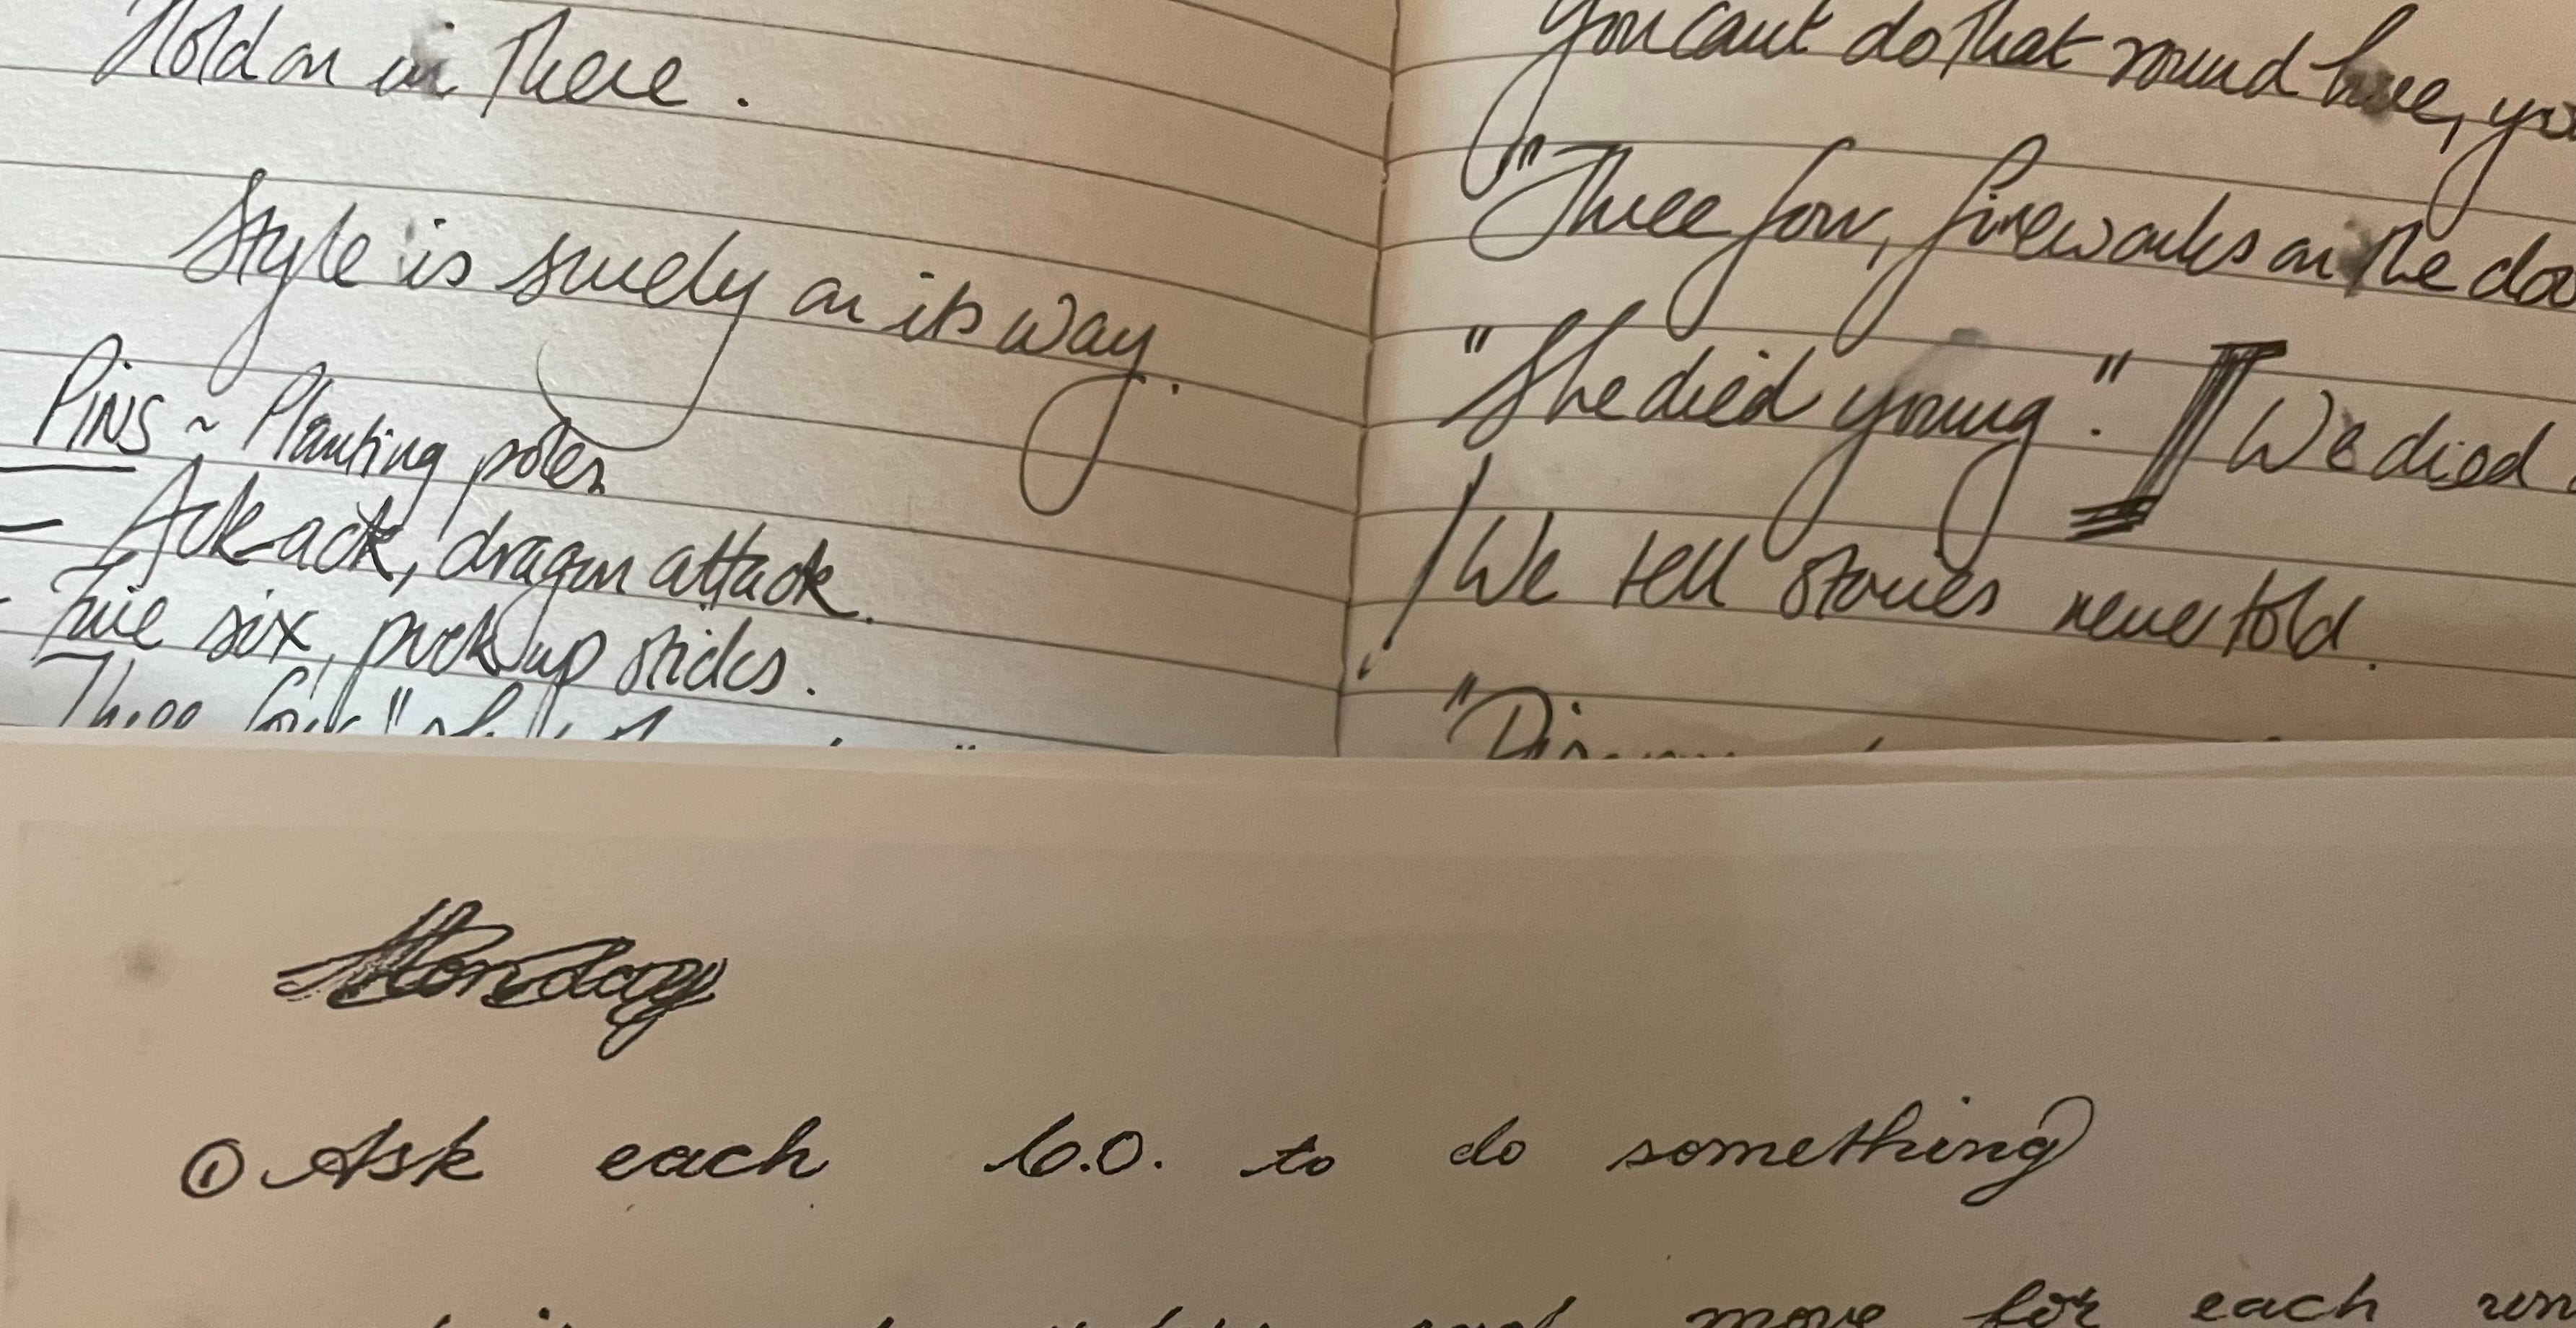 Hold on in there.
Style is surely on its way.
PINS ~ Planting poles
- Ack-ack, dragon attack.
- Five six, pick up sticks.
Three four "
You can't do that round here,
"Three four, fireworks on the
"She died young." I We died
/ We tell stories never told.
"
Monday
① Ask each 6.0. to do something
move for each